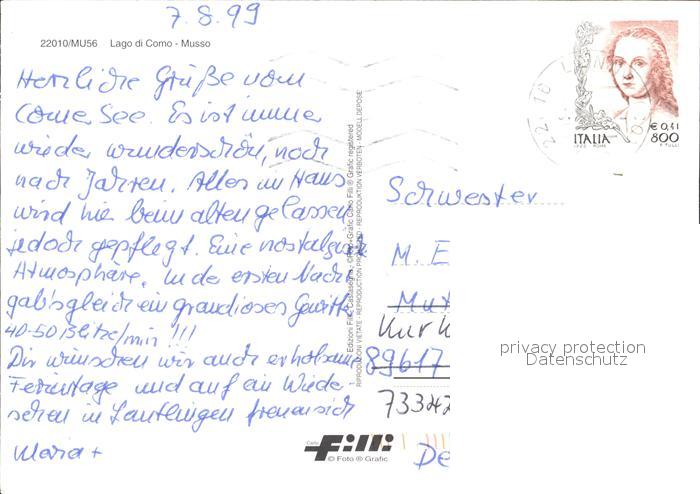 7.8.99
22010/MU56 Lago di Como - Musso
Herzliche Grüße vom
Comer See. Es ist immer
wieder wunderschön, noch
nach Jahren. Alles im Haus
wird hie beim alten gelassen
jedoch gepflegt. Eine nostalgische
Atmosphäre. In der ersten Nacht
gab's gleich ein grandioses Gewitter
40-50 Blitze/min !!!
Dir wünschen wir auch erholsame
Ferientage und auf ein Wieder-
sehen in Lautlingen freuen sich
Maria +
Edizioni Filli © Foto-Grafic Carlo Filli © Grafic registered
RIPRODUZIONE VIETATE - REPRODUCTION PROHIBED - REPRODUKTION VERBOTEN - MODELL DEPOSE
22.10
ITALIA
€ 0,41
800
Schwester
M. E
Mut
Kur K
89617
73342
De
privacy protection
Datenschutz
Carlo Filli
© Foto ® Grafic